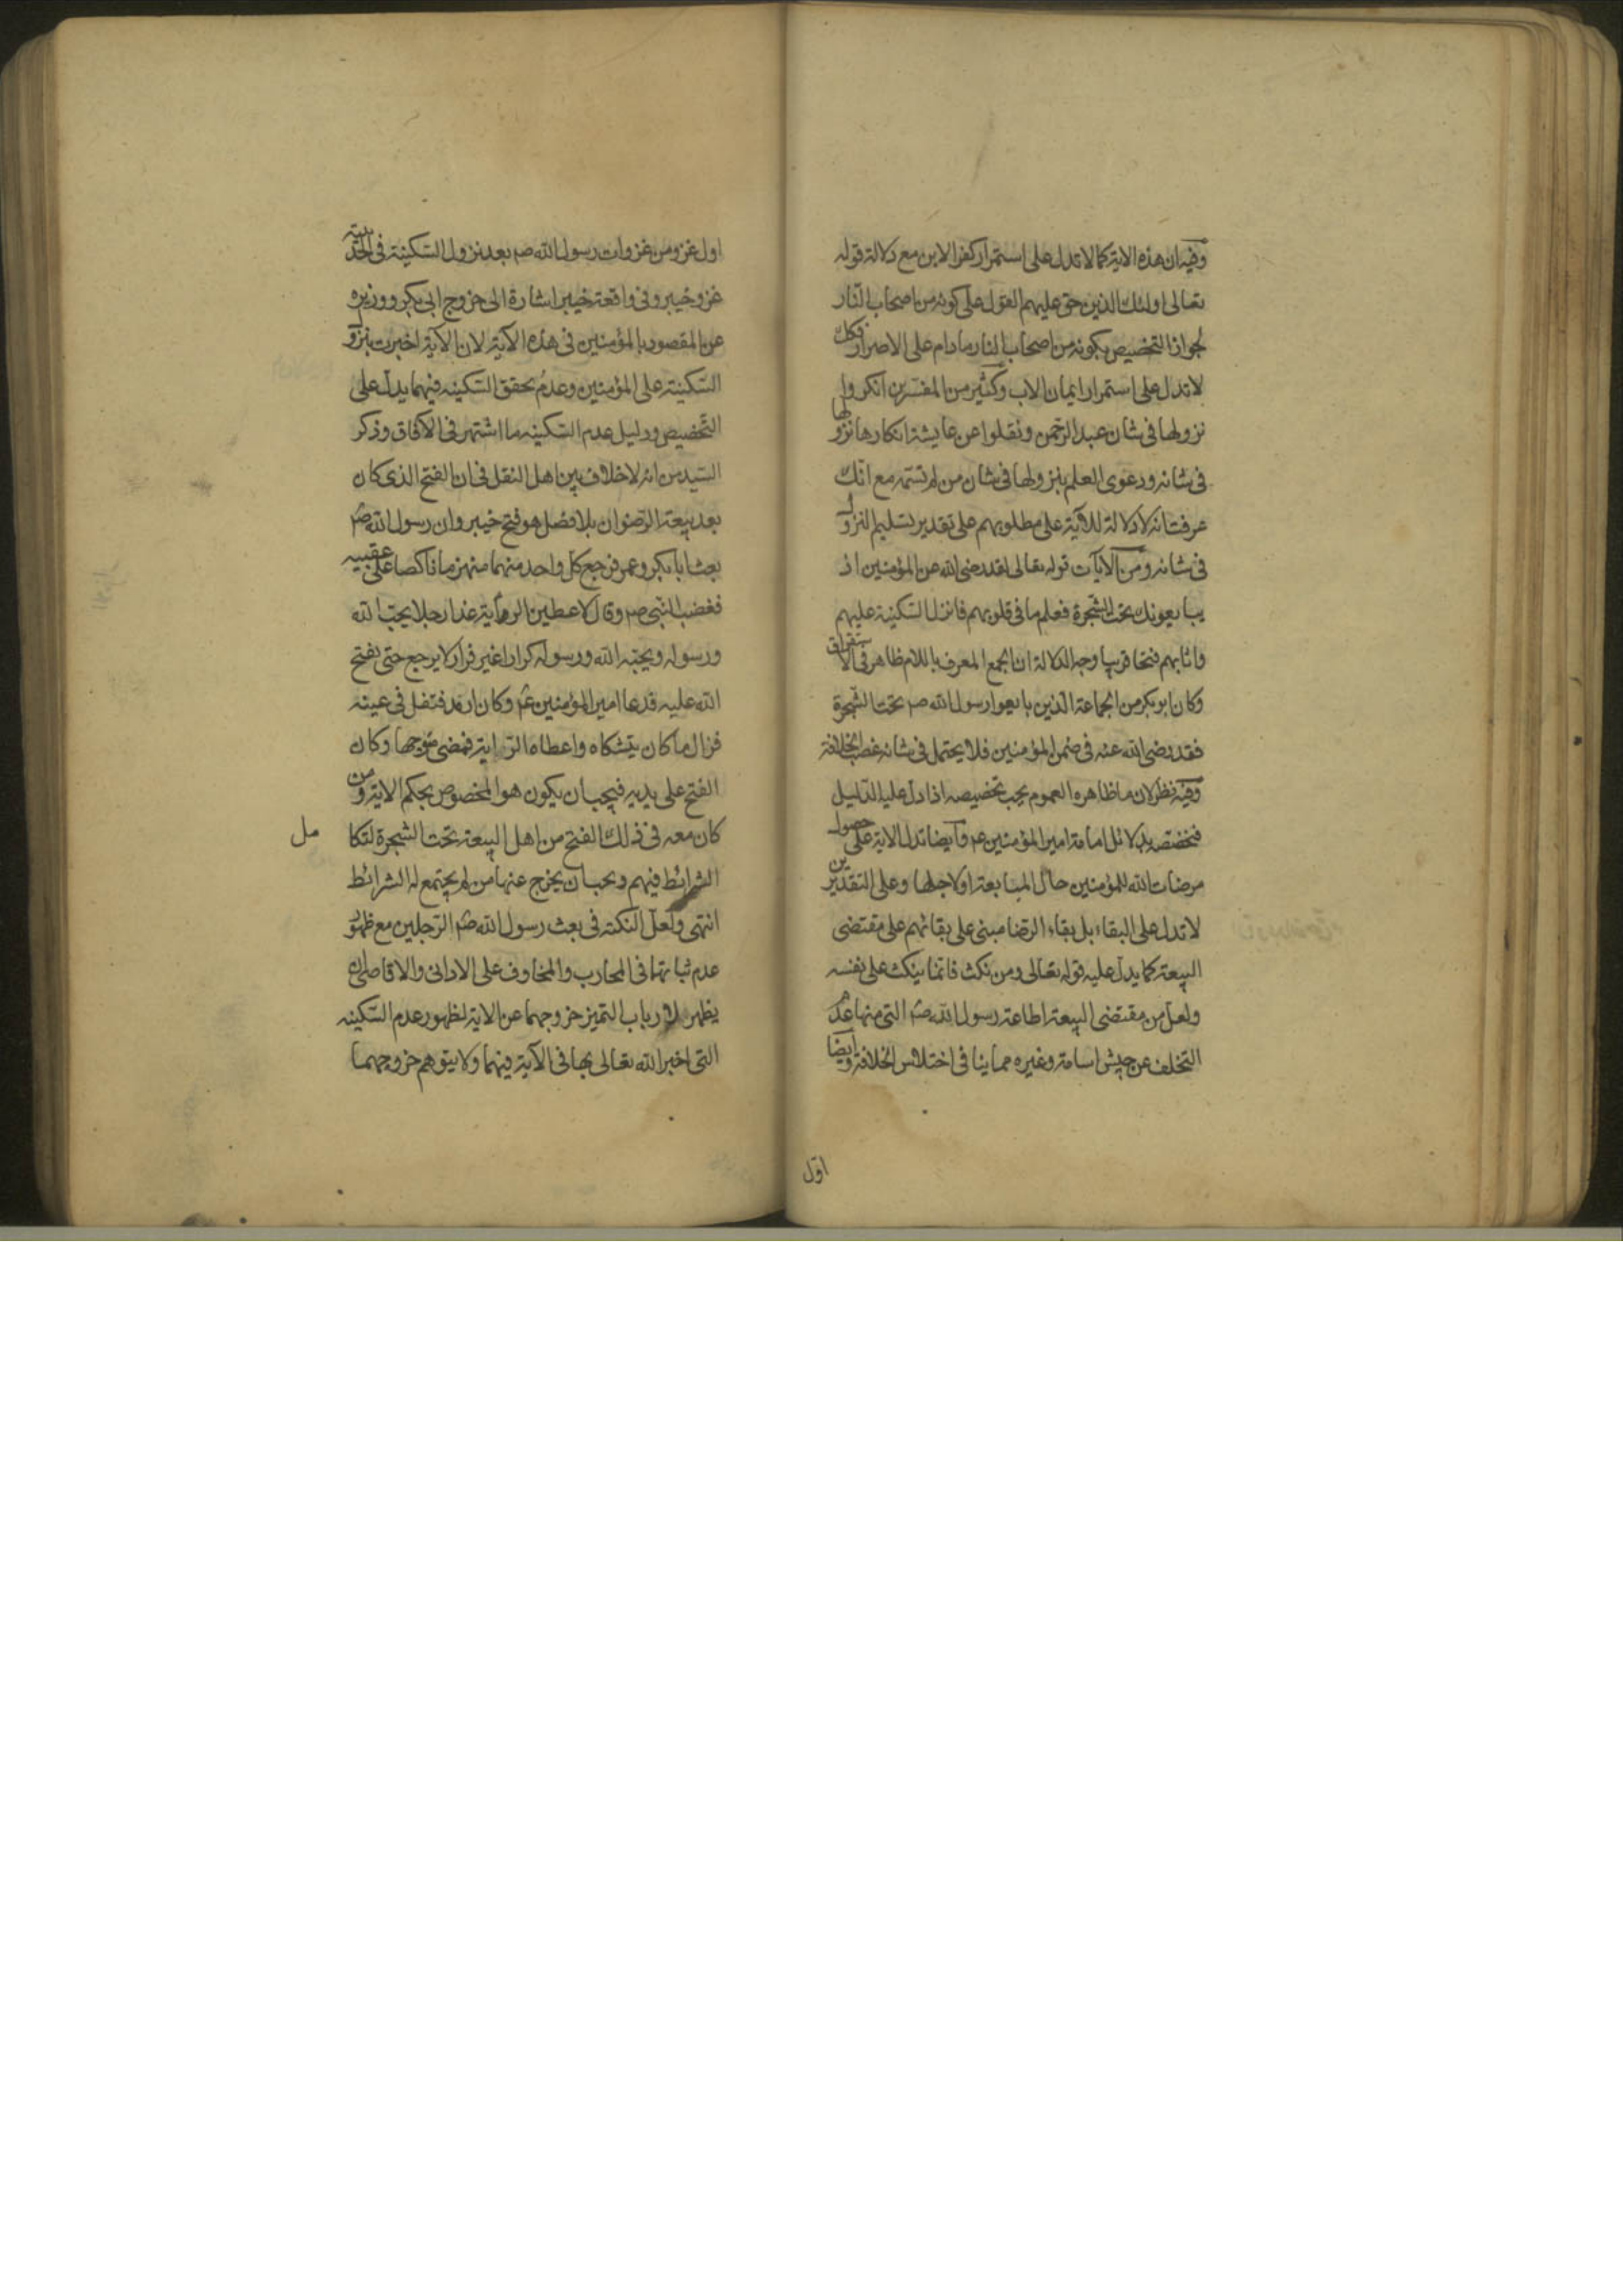 وفيه ان هذه الاية كما لا تدل على استمرار كفر الابن مع دلالة قوله
تعالى اولئك الذين حق عليهم القول على كونه من اصحاب النار
لجواز التخصيص بكونه من اصحاب النار ما دام على الاصرار فكك
لا تدل على استمرار ايمان الاب وكثير من المفسرين انكروا
نزولها فى شان عبد الرحمن ونقلوا عن عايشة انكارها نزولها
فى شانه ودعوى العلم بنزولها فى شان من لم تسمه مع انك
عرفت انه لا دلالة للآية على مطلوبهم على تقدير تسليم النزول
فى شانه ومن الآيات قوله تعالى لقد رضى الله عن المؤمنين اذ
يبايعونك تحت الشجرة فعلم ما فى قلوبهم فانزل السكينة عليهم
واثابهم فتحا قريبا وجه الدلالة ان الجمع المعرف باللام ظاهر فى الاستغراق
وكان ابو بكر من الجماعة الذين بايعوا رسول الله صم تحت الشجرة
فقد رضى الله عنه فى ضمن المؤمنين فلا يحتمل فى شانه غصب الخلافة
وفيه نظر لان ما ظاهره العموم يجب تخصيصه اذا دل عليه الدليل
فنخصصه بدلائل امامة امير المؤمنين عم وايضا تدل الاية على حصول
مرضات الله للمؤمنين حال المبايعة او لاجلها وعلى التقديرين
لا تدل على البقاء بل بقاء الرضا مبنى على بقائهم على مقتضى
البيعة كما يدل عليه قوله تعالى ومن نكث فانما ينكث على نفسه
ولعل من مقتضى البيعة اطاعة رسول الله صم التى منها عدم
التخلف عن جيش اسامة وغيره مما ينافى اختلاس الخلافة وايضا
اول
اول غزو من غزوات رسول الله صم بعد نزول السكينة فى الحديبية
غزو خيبر وفى واقعة خيبر اشارة الى خروج ابى بكر ووزيره
عن المقصود بالمؤمنين فى هذه الآية لان الآية اخبرت بنزو
السكينة على المؤمنين وعدم تحقق السكينه فيهما يدل على
التخصيص ودليل عدم السكينه ما اشتهر فى الآفاق وذكر
السيد من انه لا خلاف بين اهل النقل فى ان الفتح الذى كان
بعد بيعة الرضوان بلا فصل هو فتح خيبر وان رسول الله صم
بعث ابا بكر وعمر فرجع كل واحد منهما منهزما ناكصا على عقبيه
فغضب النبى صم وقال لاعطين الراية غدا رجلا يحب الله
ورسوله ويحبه الله ورسوله كرارا غير فرار لا يرجع حتى يفتح
الله عليه فدعا امير المؤمنين عم وكان ارمد فتفل فى عينه
فزال ما كان يتشكاه واعطاه الراية فمضى متوجها وكان
الفتح على يديه فيجب ان يكون هو المخصوص بحكم الاية ومن
كان معه فى ذلك الفتح من اهل البيعة تحت الشجرة لتكا
مل
الشرائط فيهم ويجب ان يخرج عنها من لم يجتمع له الشرائط
انتهى ولعل النكتة فى بعث رسول الله صم الرجلين مع ظهور
عدم ثباتهما فى المحارب والمخاوف على الادانى والاقاصى ان
يظهر لارباب التميز خروجهما عن الاية لظهور عدم السكينه
التى اخبر الله تعالى بها فى الآية فيهما ولا يتوهم خروجهما